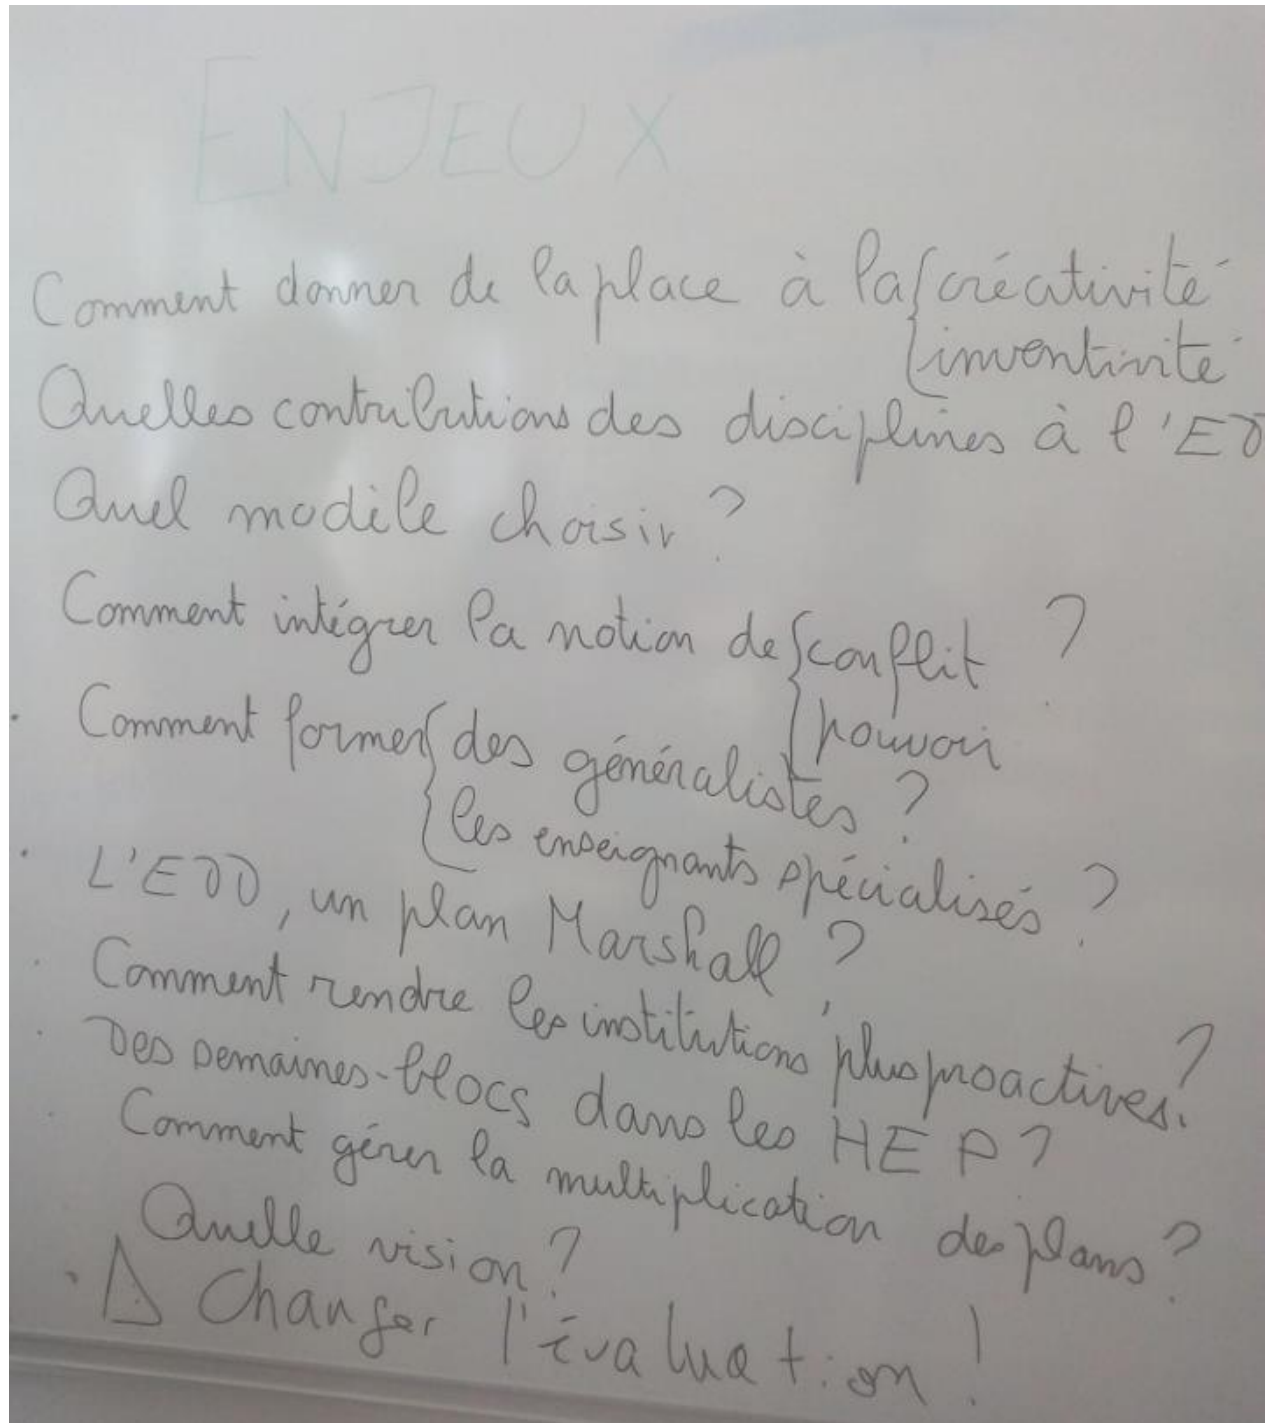 ENJEUX
Comment donner de la place à la { créativité
{ inventivité
Quelles contributions des disciplines à l'ED
Quel modèle choisir ?
Comment intégrer la notion de { conflit ?
{ pouvoir
Comment former { des généralistes ?
{ les enseignants spécialisés ?
L'EDD, un plan Marshall ?
Comment rendre les institutions plus proactives ?
Des semaines-blocs dans les HEP ?
Comment gérer la multiplication des plans ?
Quelle vision ?
Δ Changer l'évaluation !